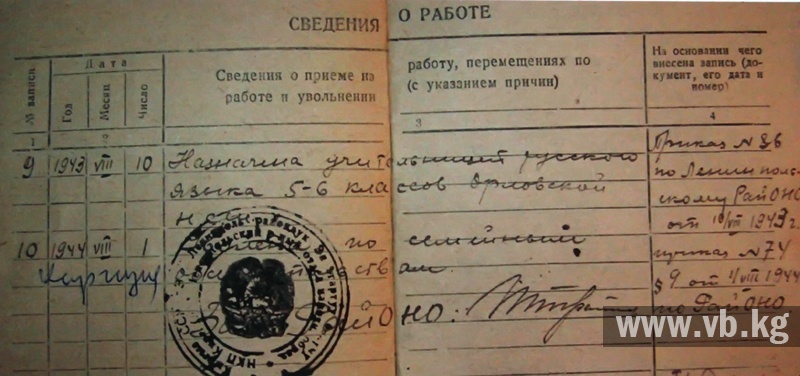 СВЕДЕНИЯ О РАБОТЕ
№ записи
Дата
Год
Месяц
Число
Сведения о приеме на работу, перемещениях по
работе и увольнении (с указанием причин)
На основании чего
внесена запись (до-
кумент, его дата и
номер)
1
3
4
9 1943 VIII 10 Назначена учительницей русского
языка 5-6 классов Орловской
нсш
Приказ № 36
по Ленинполь-
скому РайОНО
от 10/VIII 1943 г.
10 1944 VIII 1 по семейным
обстоятельствам
приказ № 74
§ 9 от 4/VIII 1944
по РайОНО
Зав. РайОНО:
НКП
www.vb.kg